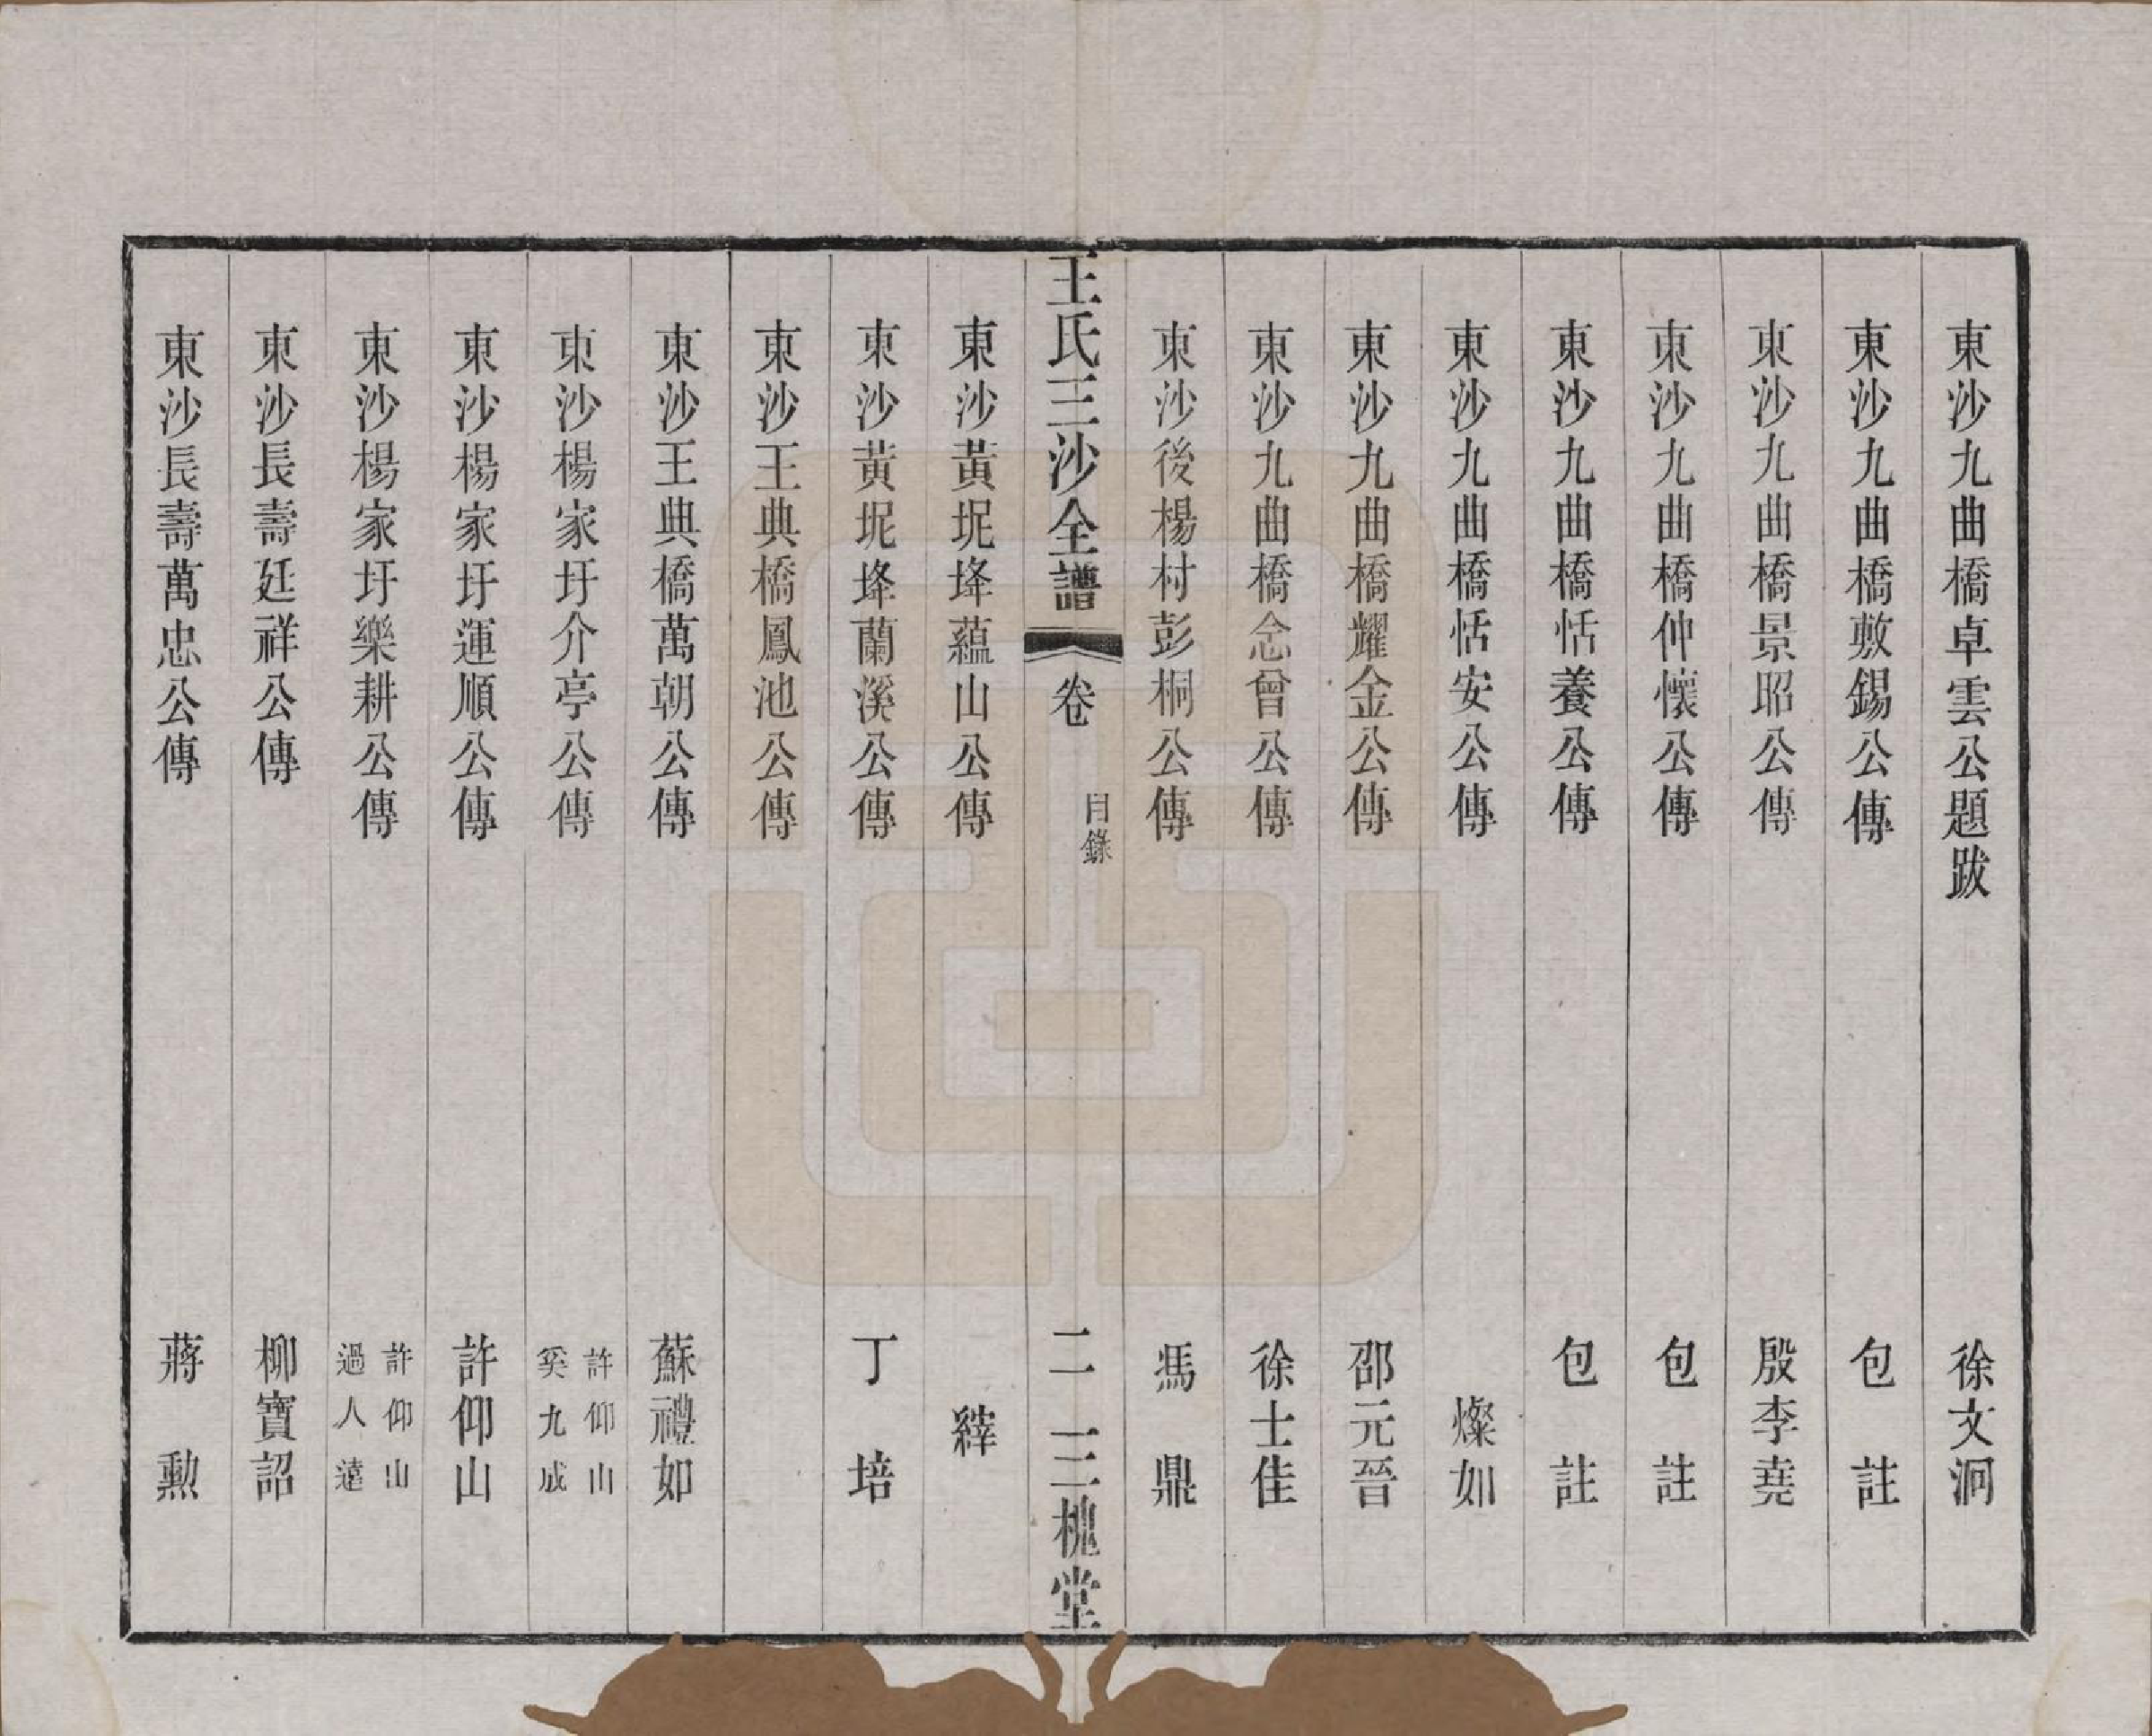 東沙九曲橋卓雲公題跋 徐文泂
東沙九曲橋敷錫公傳 包註
東沙九曲橋景昭公傳 殷李堯
東沙九曲橋仲懷公傳 包註
東沙九曲橋恬養公傳 包註
東沙九曲橋恬安公傳 燦如
東沙九曲橋耀金公傳 邵元晉
東沙九曲橋念曾公傳 徐士佳
東沙後楊村彭桐公傳 馮鼎
王氏三沙全譜 卷 目錄 二 三槐堂
東沙黃坭埄蘊山公傳 縡
東沙黃坭埄蘭溪公傳 丁培
東沙王典橋鳳池公傳
東沙王典橋萬朝公傳 蘇禮如
東沙楊家圩介亭公傳 許仰山 奚九成
東沙楊家圩運順公傳 許仰山
東沙楊家圩樂耕公傳 許仰山 過人遠
東沙長壽廷祥公傳 柳寶詔
東沙長壽萬忠公傳 蔣勳